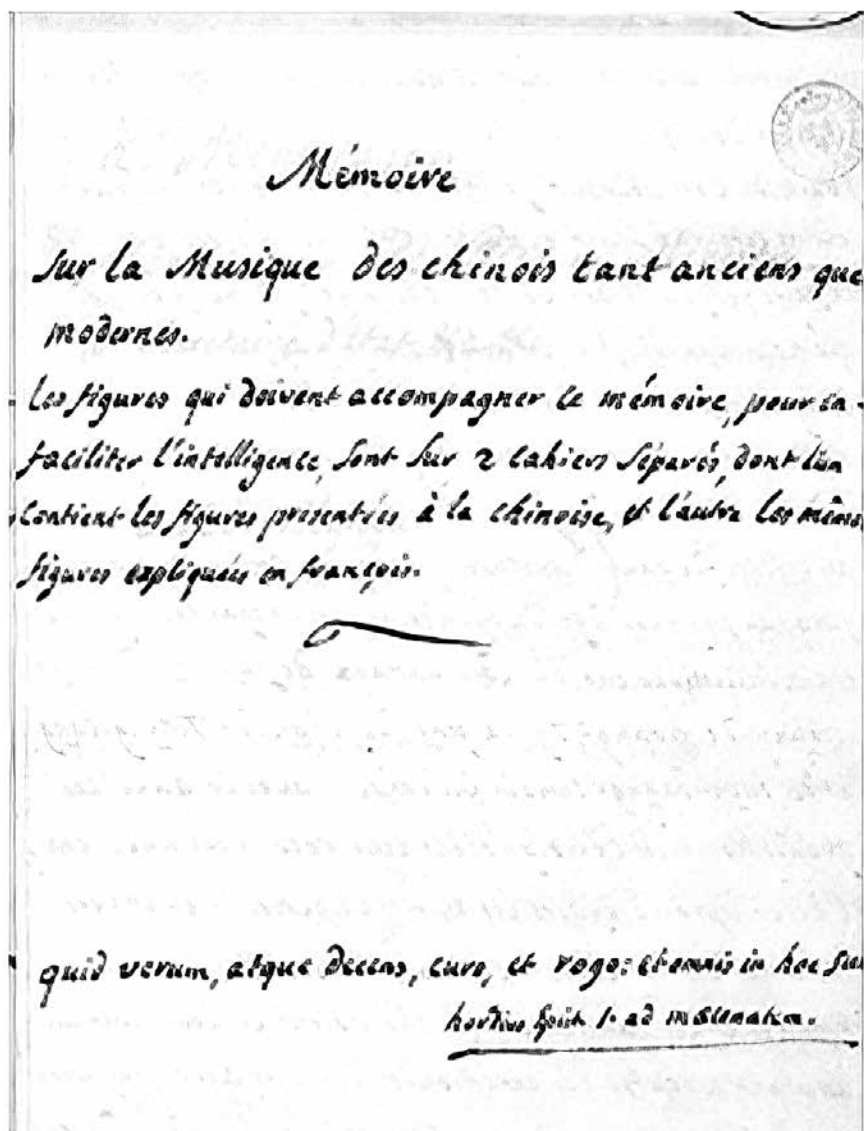 Mémoire
sur la Musique des chinois tant anciens que
modernes.
les figures qui doivent accompagner le mémoire, pour en
faciliter l'intelligence, sont sur 2 cahiers séparés, dont l'un
contient les figures présentées à la chinoise, et l'autre les mêmes
figures expliquées en françois.
quid verum, atque decens, curo, et rogo: et omnis in hoc sum
1. ad mæcenatem.